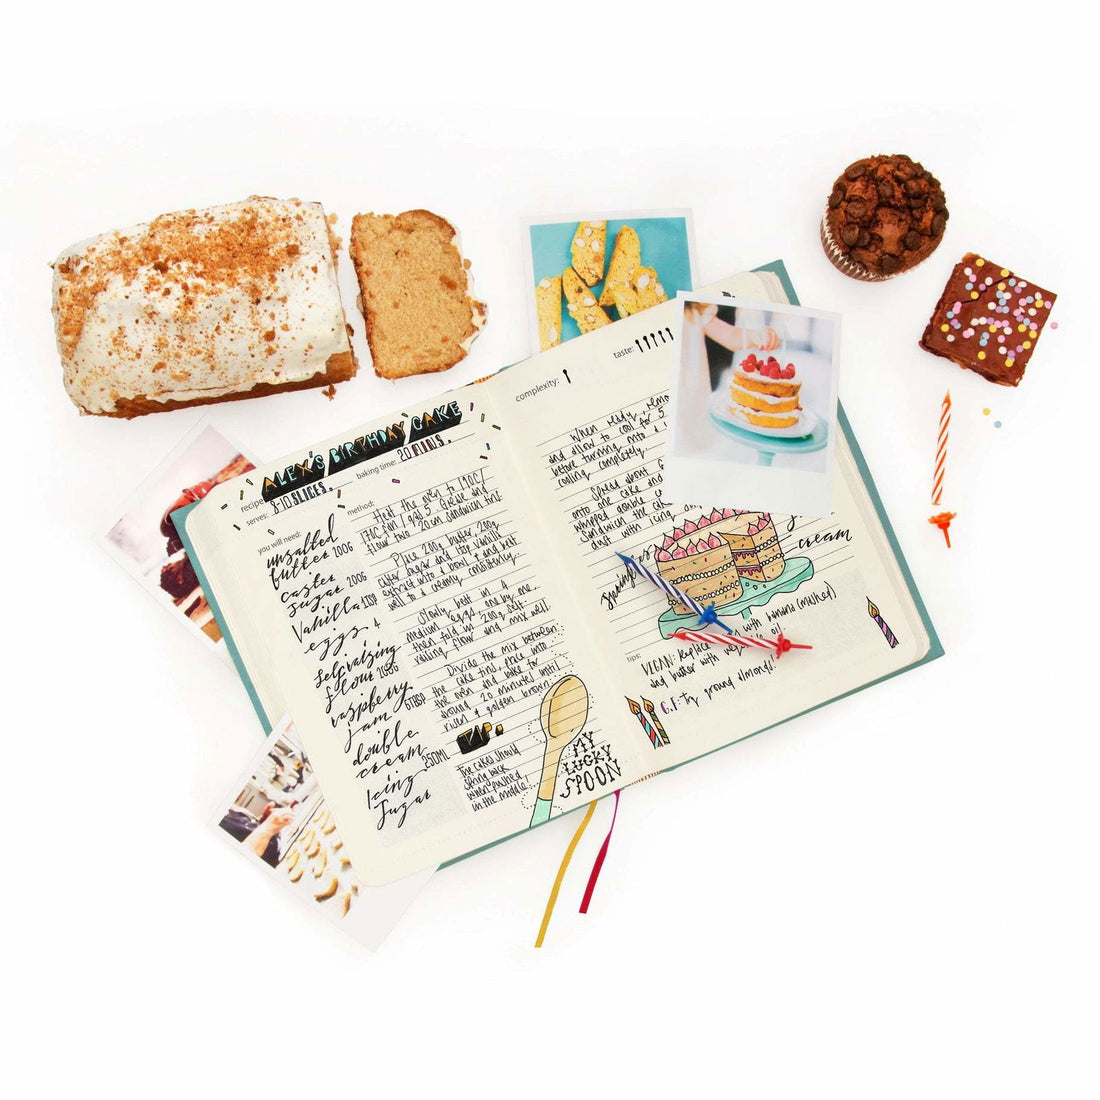 recipe: ALEX'S BIRTHDAY CAKE
serves: 8-10 SLICES. baking time: 20 MINS.
you will need:
unsalted
butter 200G
caster
sugar 200G
Vanilla 1TSP
eggs 4
self raising
flour 200G
raspberry
jam 6TBSP
double
cream 250ML
Icing
Sugar
method:
Heat the oven to 190C/
170C fan/gas 5. Grease and
flour two 20cm sandwich tins.
Place 200g butter, 200g
caster sugar and 1tsp vanilla
extract into a bowl & and beat
well to a creamy consistency.
Slowly beat in 4
medium eggs, one by one,
then fold in 200g self
raising flour and mix well.
Divide the mix between
the cake tins, place into
the oven and bake for
around 20 minutes until
risen & golden brown.
TIP:
The cakes should
spring back
when pushed
in the middle!
MY
LUCKY
SPOON
complexity:
taste:
When ready, remo
and allow to cool for 5
before turning onto a
cooling completely.
Spread about 6
onto one cake and
whipped double c
Sandwich the cak
dust with icing
cream
tips:
VEGAN: Replace with banana (mashed)
and butter with oil
G.F: Try ground almonds.